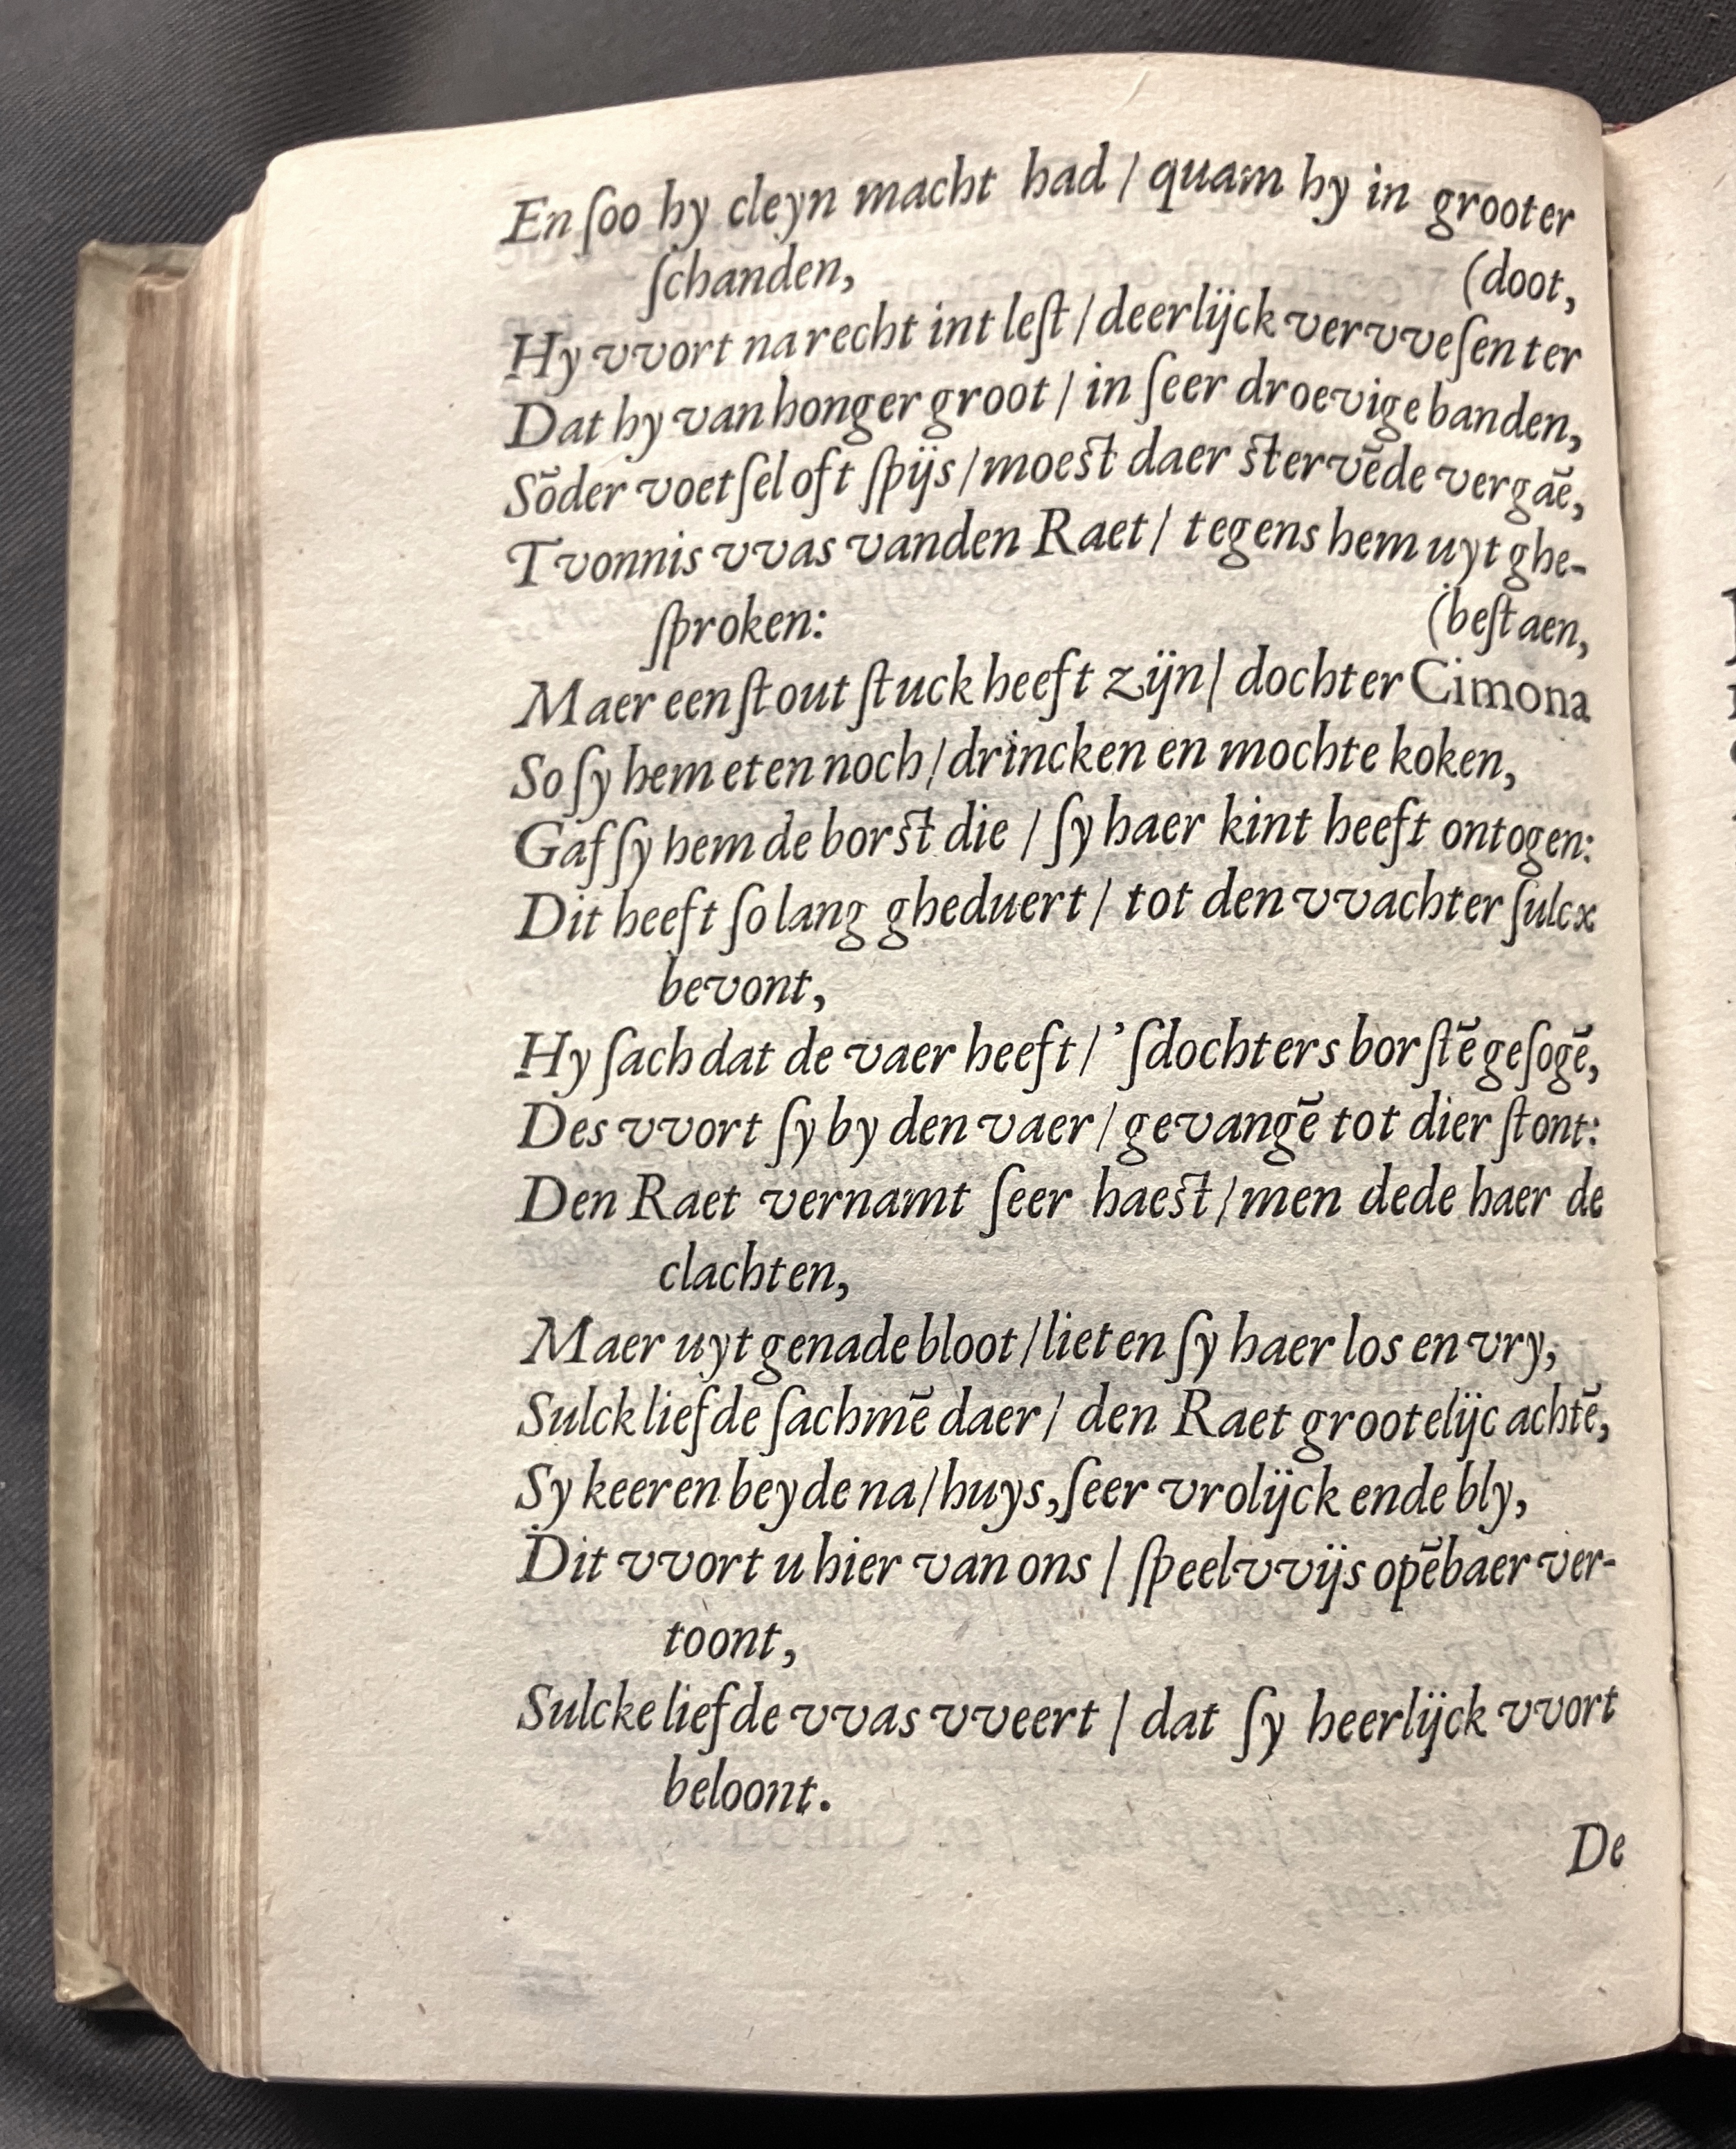 En ſoo hy cleyn macht had / quam hy in grooter
ſchanden, (doot,
Hy vvort na recht int leſt / deerlijck vervveſen ter
Dat hy van honger groot / in ſeer droevige banden,
Sōder voetſel oft ſpijs / moeſt daer ſtervēde vergāē,
Tvonnis vvas vanden Raet / tegens hem uyt ghe-
ſproken: (beſtaen,
Maer een ſtout ſtuck heeft zijn / dochter Cimona
So ſy hem eten noch / drincken en mochte koken,
Gaf ſy hem de borſt die / ſy haer kint heeft ontogen:
Dit heeft ſo lang gheduert / tot den vvachter ſulcx
bevont,
Hy ſach dat de vaer heeft / ’ſdochters borſtē geſogē,
Des vvort ſy by den vaer / gevangē tot dier ſtont:
Den Raet vernamt ſeer haeſt / men dede haer de
clachten,
Maer uyt genade bloot / lieten ſy haer los en vry,
Sulck liefde ſachmē daer / den Raet grootelijc achtē,
Sy keeren beyde na / huys, ſeer vrolijck ende bly,
Dit vvort u hier van ons / ſpeelvvijs opēbaer ver-
toont,
Sulcke liefde vvas vveert / dat ſy heerlijck vvort
beloont.
De